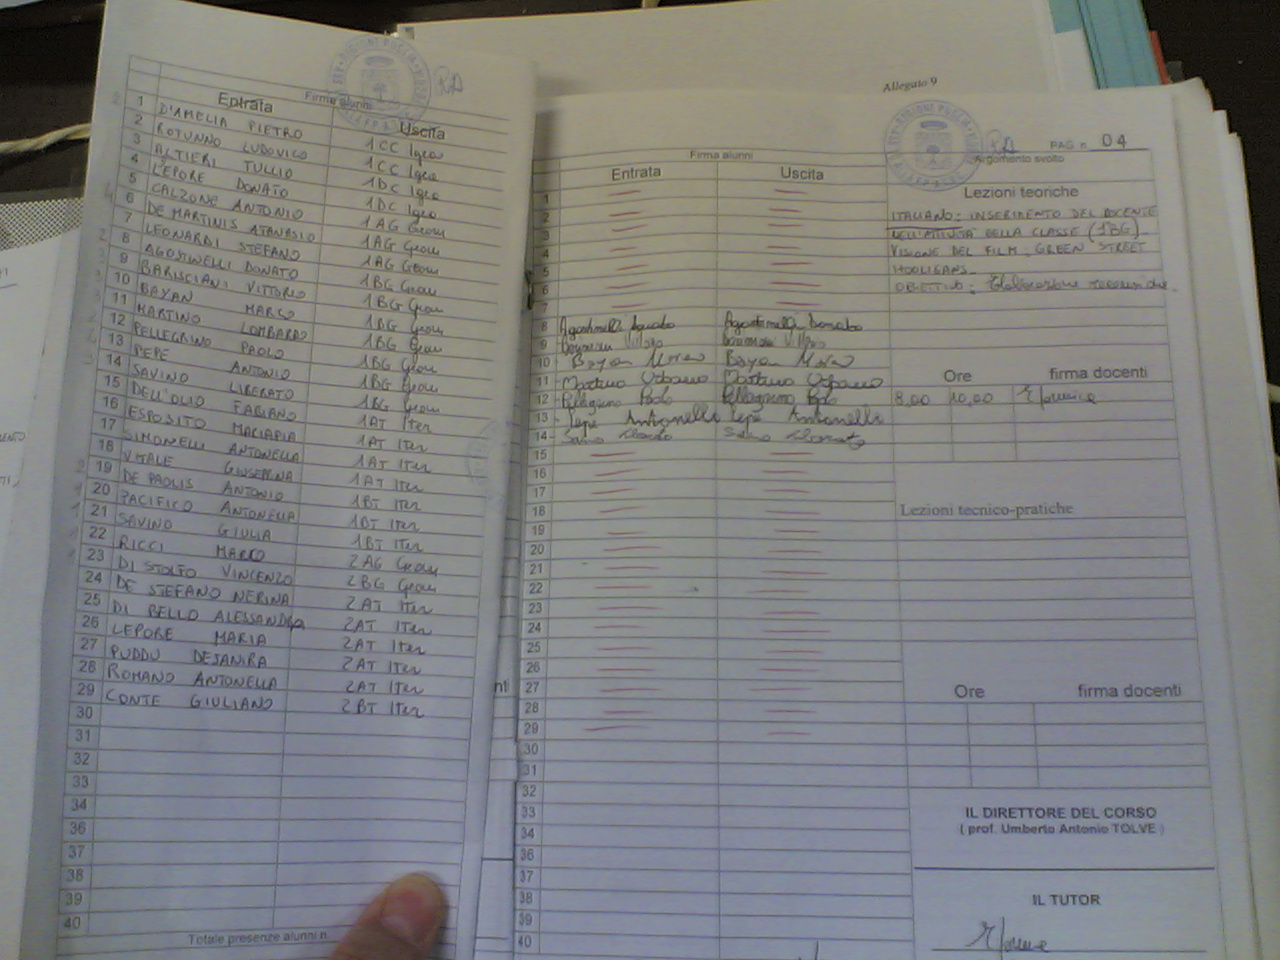 Firma alunni
Entrata Uscita
1 D'AMELIA PIETRO 1CC Igea
2 ROTUNNO LUDOVICO 1CC Igea
3 ALTIERI TULLIO 1DC Igea
4 LEPORE DONATO 1DC Igea
5 CALZONE ANTONIO 1AG Geom
6 DE MARTINIS ATANASIO 1AG Geom
7 LEONARDI STEFANO 1AG Geom
8 AGOSTINELLI DONATO 1BG Geom
9 BARISCIANI VITTORIO 1BG Geom
10 BAYAN MARCO 1BG Geom
11 MARTINO LOMBARDO 1BG Geom
12 PELLEGRINO PAOLO 1BG Geom
13 PEPE ANTONIO 1BG Geom
14 SAVINO LIBERATO 1BG Geom
15 DELL'OLIO FABIANO 1AT Iter
16 ESPOSITO 1AT Iter
17 SIMONELLI ANTONELLA 1AT Iter
18 VITALE GIUSEPPINA 1AT Iter
19 DE PAOLIS ANTONIO 1BT Iter
20 PACIFICO ANTONELLA 1BT Iter
21 SAVINO GIULIA 1BT Iter
22 RICCI MARCO 2AG Geom
23 DI STOLFO VINCENZO 2BG Geom
24 DE STEFANO NERINA 2AT Iter
25 DI BELLO ALESSANDRA 2AT Iter
26 LEPORE MARIA 2AT Iter
27 PUDDU DEJANIRA 2AT Iter
28 ROMANO ANTONELLA 2AT Iter
29 CONTE GIULIANO 2BT Iter
30
31
32
33
34
36
37
38
39
40
Totale presenze alunni n.
Allegato 9
PAG n. 04
Firma alunni
Entrata Uscita
Argomento svolto
Lezioni teoriche
ITALIANO: INSERIMENTO DEL DOCENTE
NELL'ATTIVITÀ DELLA CLASSE (1BG)
VISIONE DEL FILM GREEN STREET
HOOLIGANS
OBIETTIVO: Elaborazione recensione
1
2
3
4
5
6
7
8 Agostinelli Donato Agostinelli Donato
9
10 Bayan Marco Bayan Marco
11 Martino Martino
12 Pellegrino Paolo Pellegrino Paolo
13 Pepe Antonello Pepe Antonello
14 Savino Savino
Ore firma docenti
8,00 10,00
15
16
17
18
19
20
21
22
23
24
25
26
27
28
29
30
31
32
33
34
36
37
38
39
40
Lezioni tecnico-pratiche
Ore firma docenti
IL DIRETTORE DEL CORSO
( prof. Umberto Antonio TOLVE )
IL TUTOR